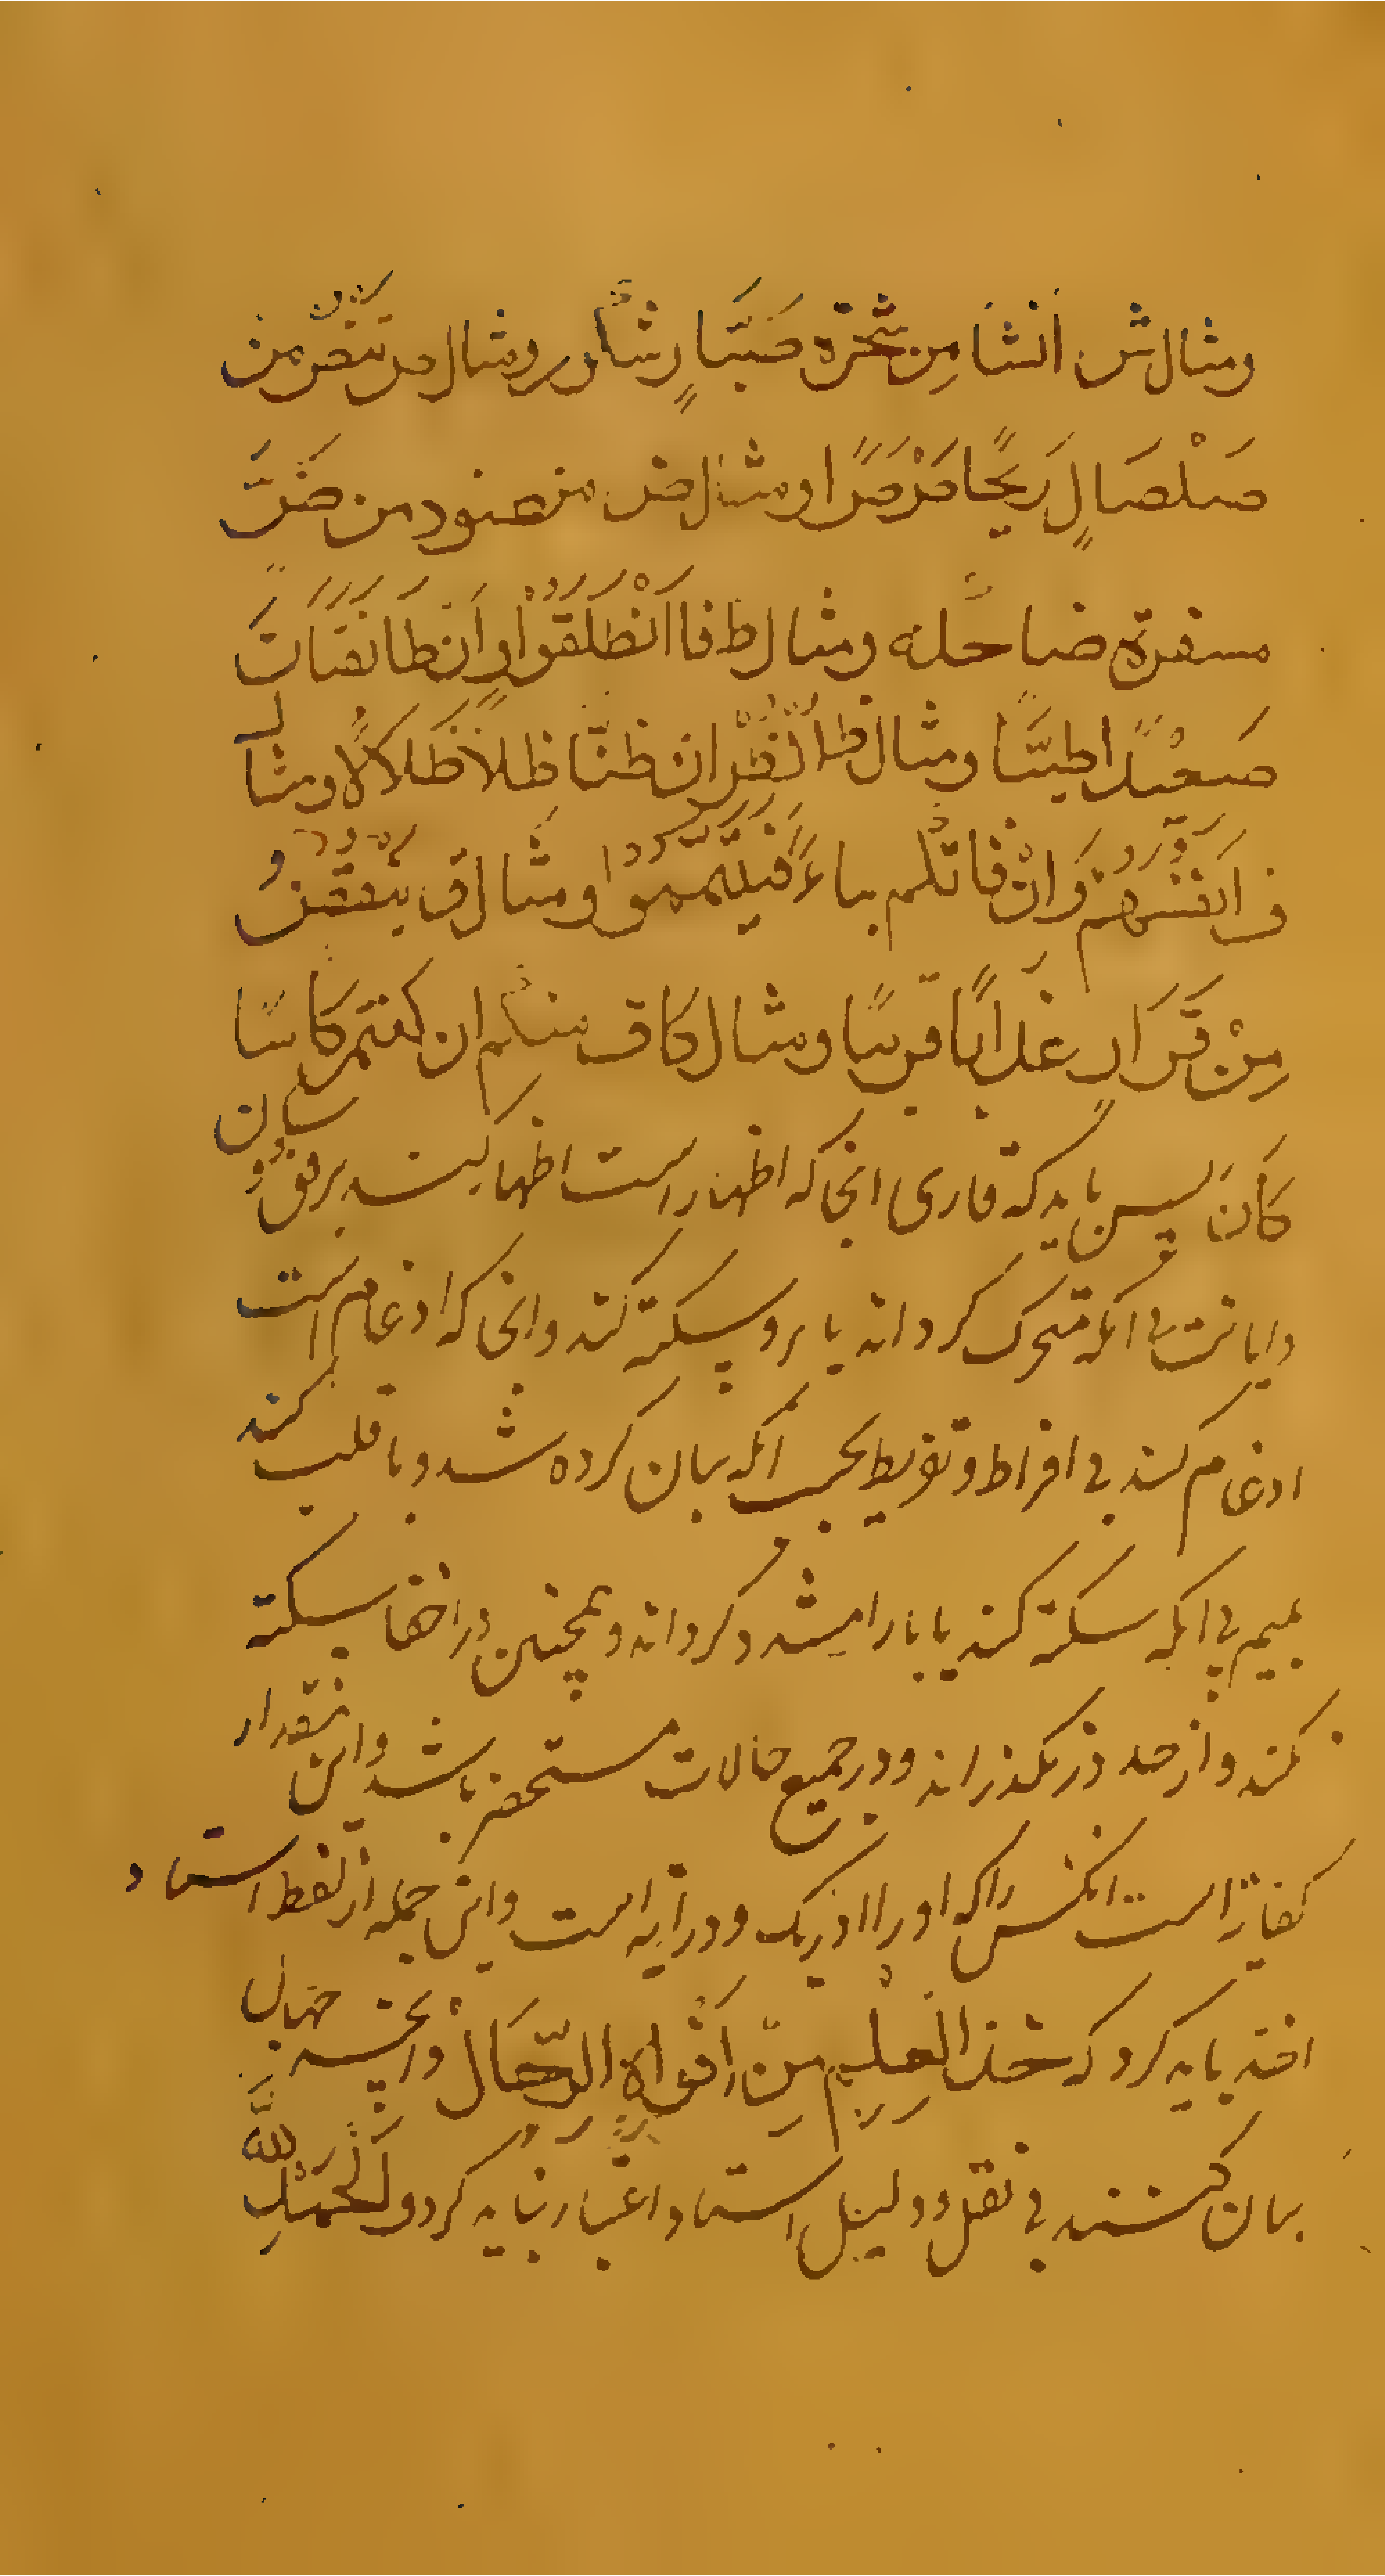 ومثال ش انشا مِن شجَرَة صَبَّارٍ شَّكُور ومثال ص يَنْصُرُ من
صَلْصَالٍ رِيحًا صَرْصَرًا ومثال ض منضود من ضَرَّ
مسفرة ضاحكه ومثال ط فاانْطَلَقُوْا وَاِنْ طَائفَتَانِ
صَعِيْدًا طيبًا ومثال ظ اُنْظُرْ ان ظَنَّا ظِلًّا ظَلِيلًا ومثال
ف اَنفُسَهُم وَانْ فاتكم بماءً فَتَيَمَّمُوْا ومثال ق يَنقَضُ
مِنْ قَرَارٍ عَذَابًا قريبًا ومثال كاف منكم ان كنتم كاسًا
كَانَ پس بايد كه قارى انجا كه اظهار است اظهار كند برفق و سكون
و ابانت بى انكه متحرك كرداند يا برو سكته كند وانجا كه ادغام است
ادغام كند بى افراط و تفريط بحسب انكه بيان كرده شد و با قلب كند
بميم بى انكه سكته كند يا بارا مشدد كرداند و همچنين در اخفا سكته
نكند و از حد در نكذراند و در جميع حالات مستحضر باشد واين مقدار
كفايت است انكس را كه او را ادراك و درايه است واين جمله از لفظ استاد
اخذ بايد كرد كه خذ العِلْم مِنْ اَفْوَاهِ الرِّجَالْ وانچه جهال
بيان كنند بى نقل و دليل استاد اعتبار نبايد كرد و الحَمْدُ لِلّٰه